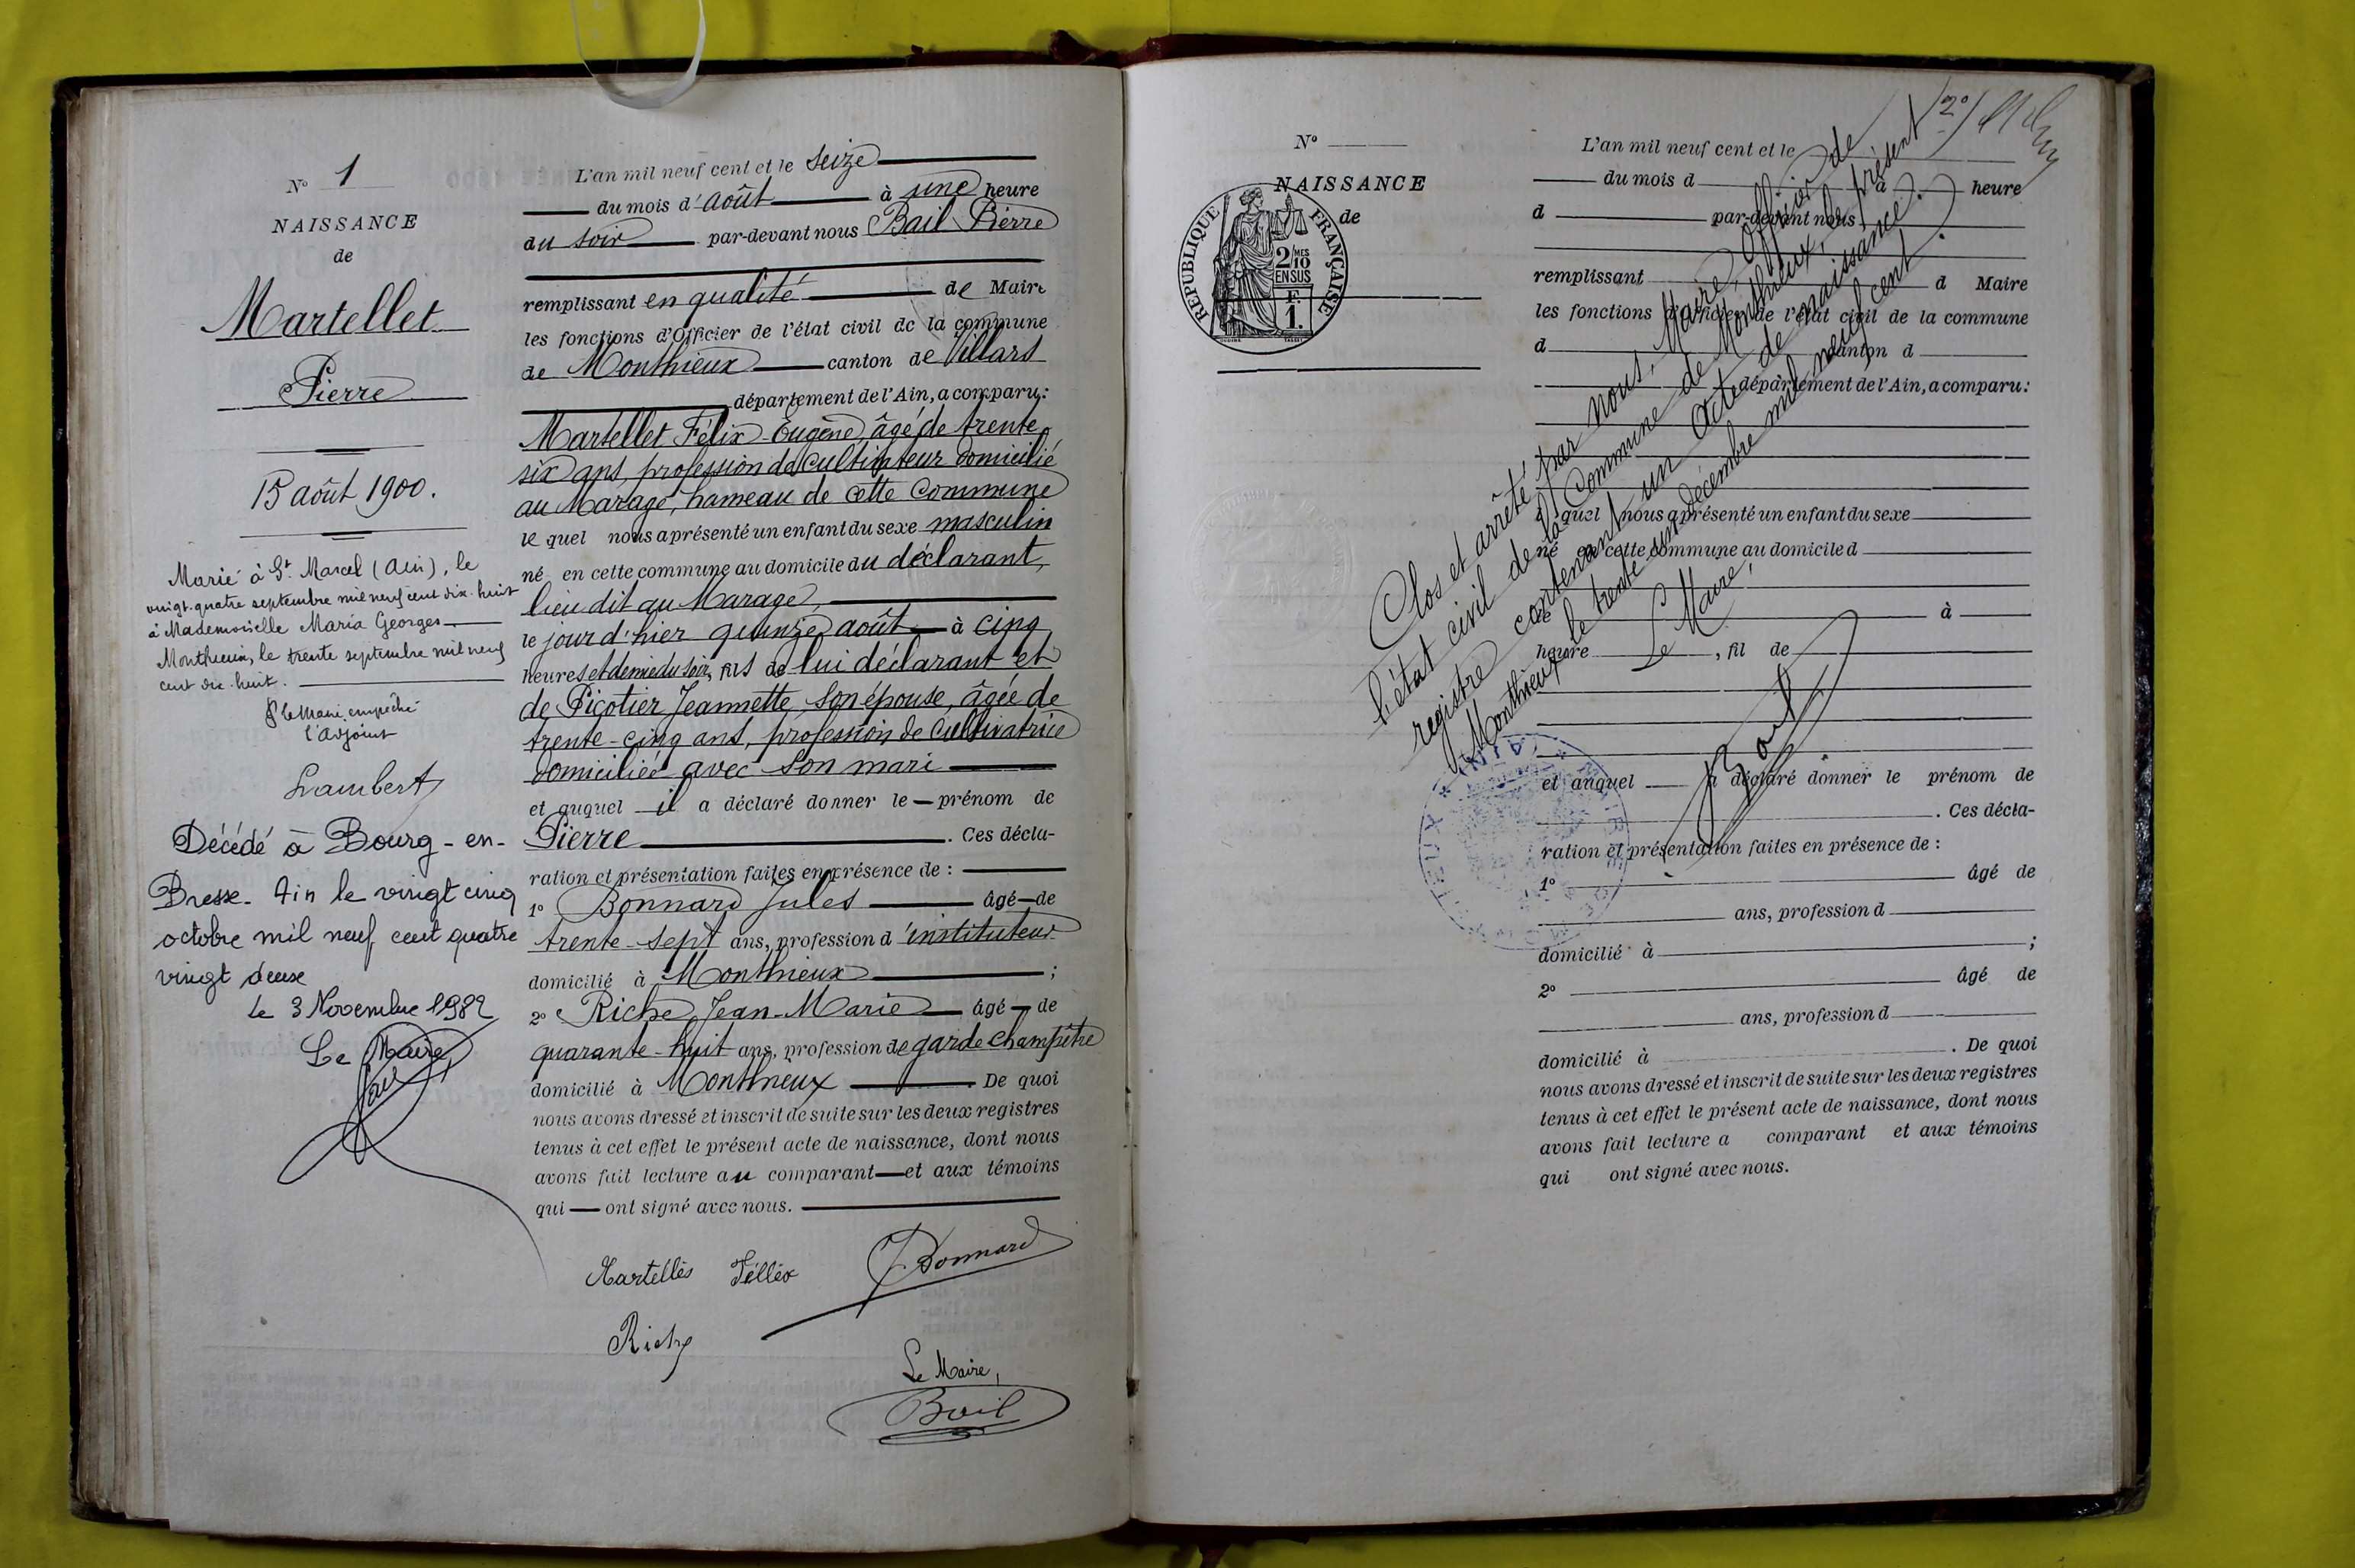 N° 1
NAISSANCE
de
Martellet
Pierre
15 août 1900.
Marié à St Marcel (Ain), le
vingt-quatre septembre mil neuf cent dix-huit
à Mademoiselle Maria Georges
Monthieux, le trente septembre mil neuf
cent dix-huit.
Pr le Maire empêché
l'adjoint
Lambert
Décédé à Bourg-en-
Bresse - Ain le vingt cinq
octobre mil neuf cent quatre
vingt deux
Le 3 Novembre 1982
Le Maire,
L'an mil neuf cent et le seize
du mois d'août à une heure
du soir par-devant nous Bail Pierre
remplissant en qualité de Maire
les fonctions d'Officier de l'état civil de la commune
de Monthieux canton de Villars
département de l'Ain, a comparu:
Martellet Félix-Eugène, âgé de trente
six ans, profession de cultivateur domicilié
au Marage, hameau de cette Commune
le quel nous a présenté un enfant du sexe masculin
né en cette commune au domicile du déclarant,
lieu dit au Marage,
le jour d'hier quinze août à cinq
heures et demie du soir, fils de lui déclarant et
de Picotier Jeannette, son épouse, âgée de
trente-cinq ans, profession de cultivatrice
domiciliée avec son mari
et auquel il a déclaré donner le prénom de
Pierre. Ces décla-
ration et présentation faites en présence de :
1° Bonnard Jules âgé de
trente-sept ans, profession d'instituteur
domicilié à Monthieux ;
2° Riche Jean-Marie âgé de
quarante-huit ans, profession de garde champêtre
domicilié à Monthieux. De quoi
nous avons dressé et inscrit de suite sur les deux registres
tenus à cet effet le présent acte de naissance, dont nous
avons fait lecture au comparant et aux témoins
qui ont signé avec nous.
Martellès Félléx J. Bonnard
Riche
Le Maire,
Bail
N°
NAISSANCE
de
REPUBLIQUE FRANÇAISE
2/10 MES
EN SUS
F.
1.
L'an mil neuf cent et le
du mois d à heure
d par-devant nous
remplissant d Maire
les fonctions d'Officier de l'état civil de la commune
d canton d
département de l'Ain, a comparu:
l quel nous a présenté un enfant du sexe
né en cette commune au domicile d
le à
heure , fil de
et auquel a déclaré donner le prénom de
. Ces décla-
ration et présentation faites en présence de :
1° âgé de
ans, profession d
domicilié à ;
2° âgé de
ans, profession d
domicilié à . De quoi
nous avons dressé et inscrit de suite sur les deux registres
tenus à cet effet le présent acte de naissance, dont nous
avons fait lecture a comparant et aux témoins
qui ont signé avec nous.
Clos et arrêté par nous, Maire, Officier de
l'état civil de la Commune de Monthieux, le présent
registre contenant un acte de naissance.
Monthieux le trente-un décembre mil neuf cent.
Le Maire,
Bail